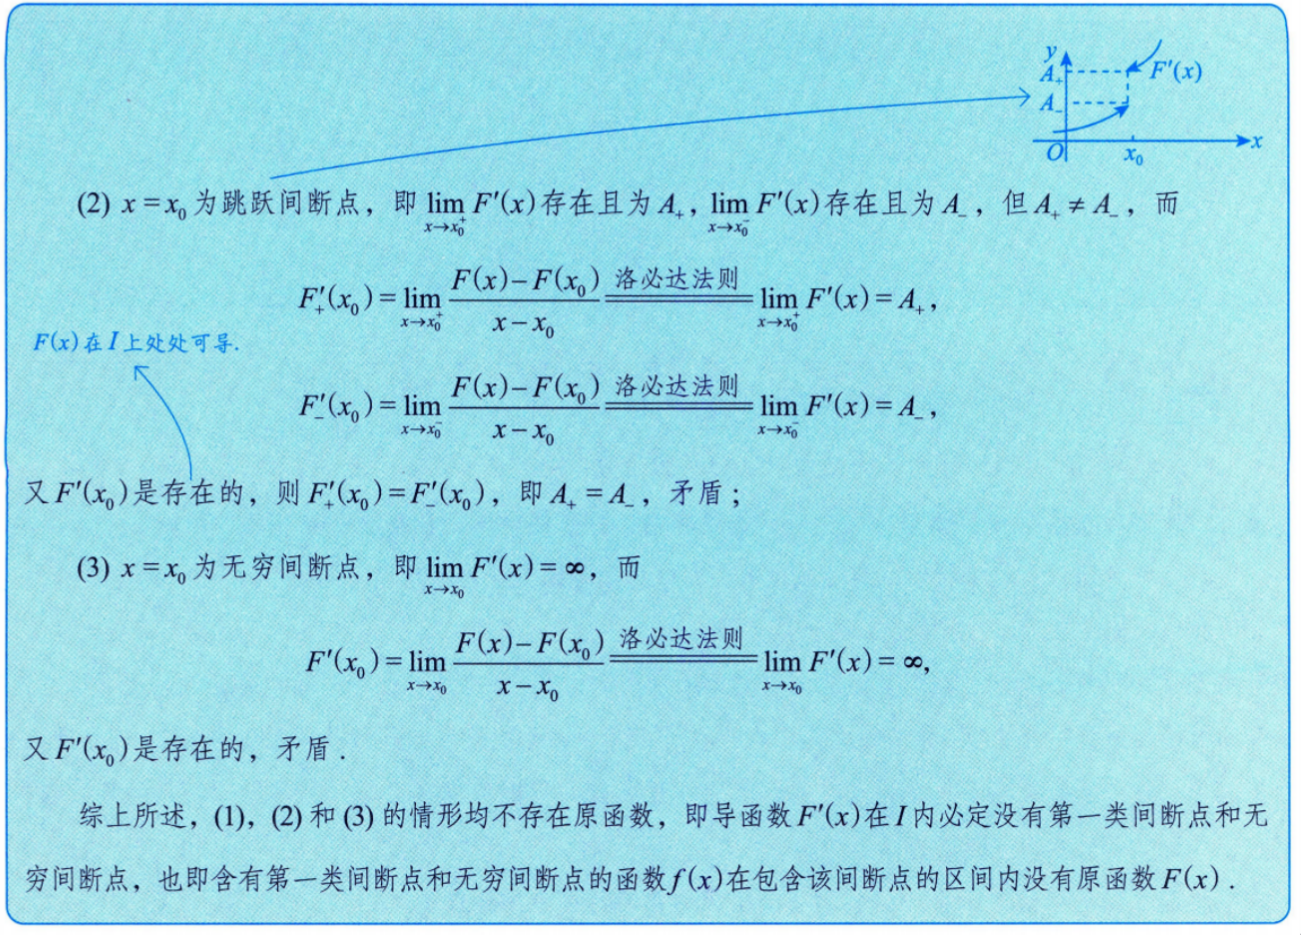 y
A₊
F′(x)
A₋
O
x₀
x
(2) x = x₀ 为跳跃间断点，即 lim_{x→x₀⁺} F′(x) 存在且为 A₊，lim_{x→x₀⁻} F′(x) 存在且为 A₋，但 A₊ ≠ A₋，而
F′₊(x₀) = lim_{x→x₀⁺} (F(x)−F(x₀))/(x−x₀) ══洛必达法则══ lim_{x→x₀⁺} F′(x) = A₊，
F(x) 在 I 上处处可导.
F′₋(x₀) = lim_{x→x₀⁻} (F(x)−F(x₀))/(x−x₀) ══洛必达法则══ lim_{x→x₀⁻} F′(x) = A₋，
又 F′(x₀) 是存在的，则 F′₊(x₀) = F′₋(x₀)，即 A₊ = A₋，矛盾；
(3) x = x₀ 为无穷间断点，即 lim_{x→x₀} F′(x) = ∞，而
F′(x₀) = lim_{x→x₀} (F(x)−F(x₀))/(x−x₀) ══洛必达法则══ lim_{x→x₀} F′(x) = ∞,
又 F′(x₀) 是存在的，矛盾．
综上所述，(1)，(2) 和 (3) 的情形均不存在原函数，即导函数 F′(x) 在 I 内必定没有第一类间断点和无
穷间断点，也即含有第一类间断点和无穷间断点的函数 f(x) 在包含该间断点的区间内没有原函数 F(x)．